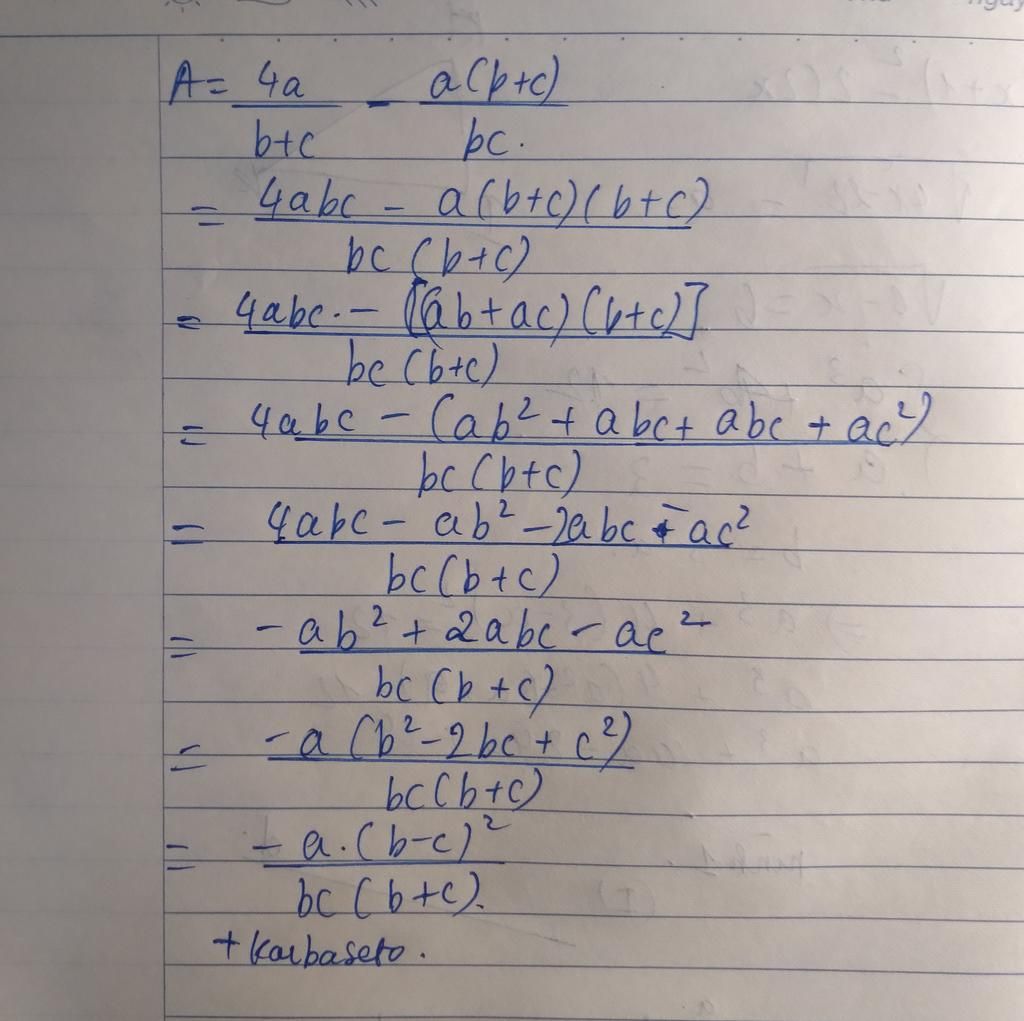 A = 4a/(b+c) - a(b+c)/bc.
= (4abc - a(b+c)(b+c))/(bc(b+c))
= (4abc. - [(ab+ac)(b+c)])/(bc(b+c))
= (4abc - (ab² + abc + abc + ac²))/(bc(b+c))
= (4abc - ab² - 2abc - ac²)/(bc(b+c))
= (-ab² + 2abc - ac²)/(bc(b+c))
= (-a(b² - 2bc + c²))/(bc(b+c))
= (-a.(b-c)²)/(bc(b+c)).